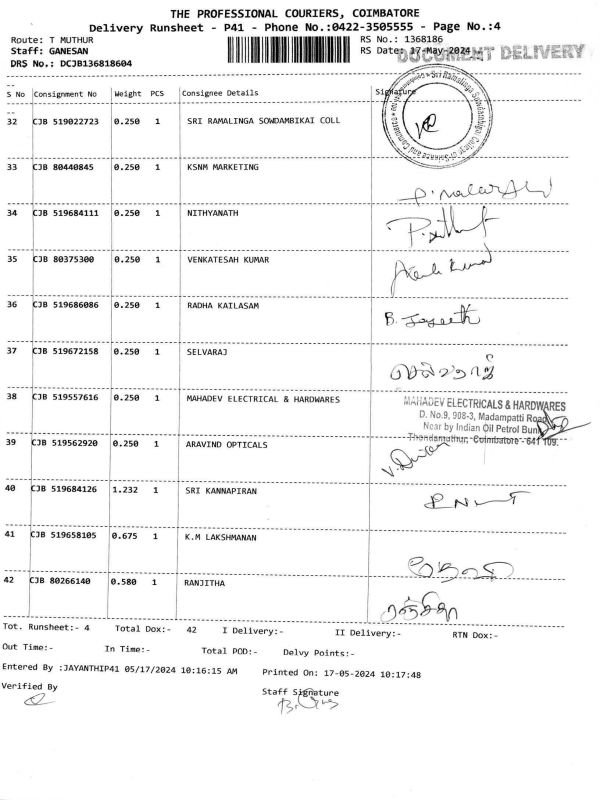 THE PROFESSIONAL COURIERS, COIMBATORE
Delivery Runsheet - P41 - Phone No.:0422-3505555 - Page No.:4
Route: T MUTHUR RS No.: 1368186
Staff: GANESAN RS Date: 17-May-2024
DOCUMENT DELIVERY
DRS No.: DCJB136818604
S No Consignment No Weight PCS Consignee Details Signature
32 CJB 519022723 0.250 1 SRI RAMALINGA SOWDAMBIKAI COLL
33 CJB 80440845 0.250 1 KSNM MARKETING
34 CJB 519684111 0.250 1 NITHYANATH
35 CJB 80375300 0.250 1 VENKATESAH KUMAR
36 CJB 519686086 0.250 1 RADHA KAILASAM
B. Jayeeth
37 CJB 519672158 0.250 1 SELVARAJ
செல்வராஜ்
38 CJB 519557616 0.250 1 MAHADEV ELECTRICAL & HARDWARES
MAHADEV ELECTRICALS & HARDWARES
D. No.9, 908-3, Madampatti Road
Near by Indian Oil Petrol Bunk
Thondamuthur, Coimbatore - 641 109.
39 CJB 519562920 0.250 1 ARAVIND OPTICALS
40 CJB 519684126 1.232 1 SRI KANNAPIRAN
41 CJB 519658105 0.675 1 K.M LAKSHMANAN
42 CJB 80266140 0.580 1 RANJITHA
ரஞ்சிதா
Tot. Runsheet:- 4 Total Dox:- 42 I Delivery:- II Delivery:- RTN Dox:-
Out Time:- In Time:- Total POD:- Delvy Points:-
Entered By :JAYANTHIP41 05/17/2024 10:16:15 AM Printed On: 17-05-2024 10:17:48
Verified By Staff Signature